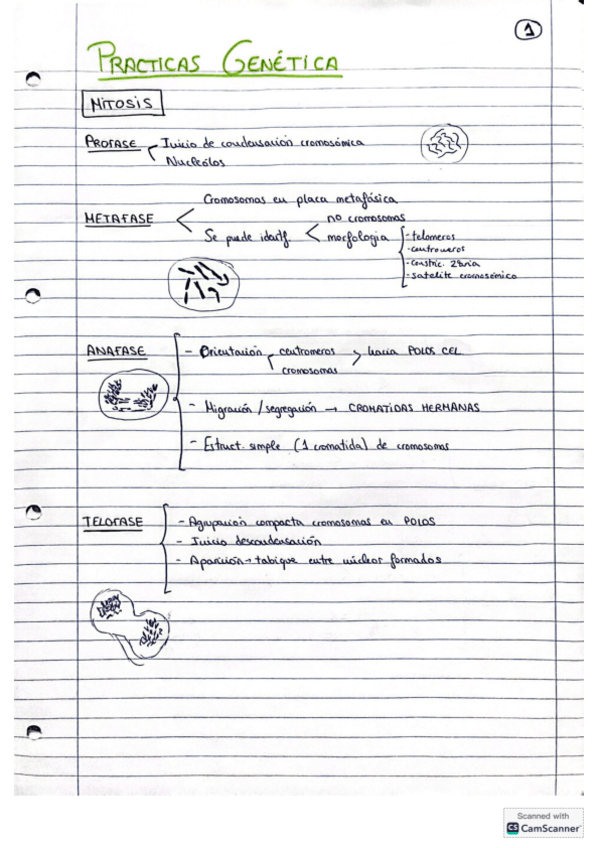 1
PRACTICAS GENÉTICA
MITOSIS
PROFASE
Inicio de condensación cromosómica
Nucleólos
METAFASE
Cromosomas en placa metafásica
Se puede identf.
no cromosomas
morfologia
- telomeros
- centromeros
- constric. 2ªaria
- satelite cromosómico
ANAFASE
- Orientación
centromeros
cromosomas
hacia POLOS CEL
- Migración / segregación → CROMATIDAS HERMANAS
- Estruct. simple (1 cromatida) de cromosomas
TELOFASE
- Agrupación compacta cromosomas en POLOS
- Inicio descondensación
- Aparición → tabique entre núcleos formados
Scanned with
CS CamScanner